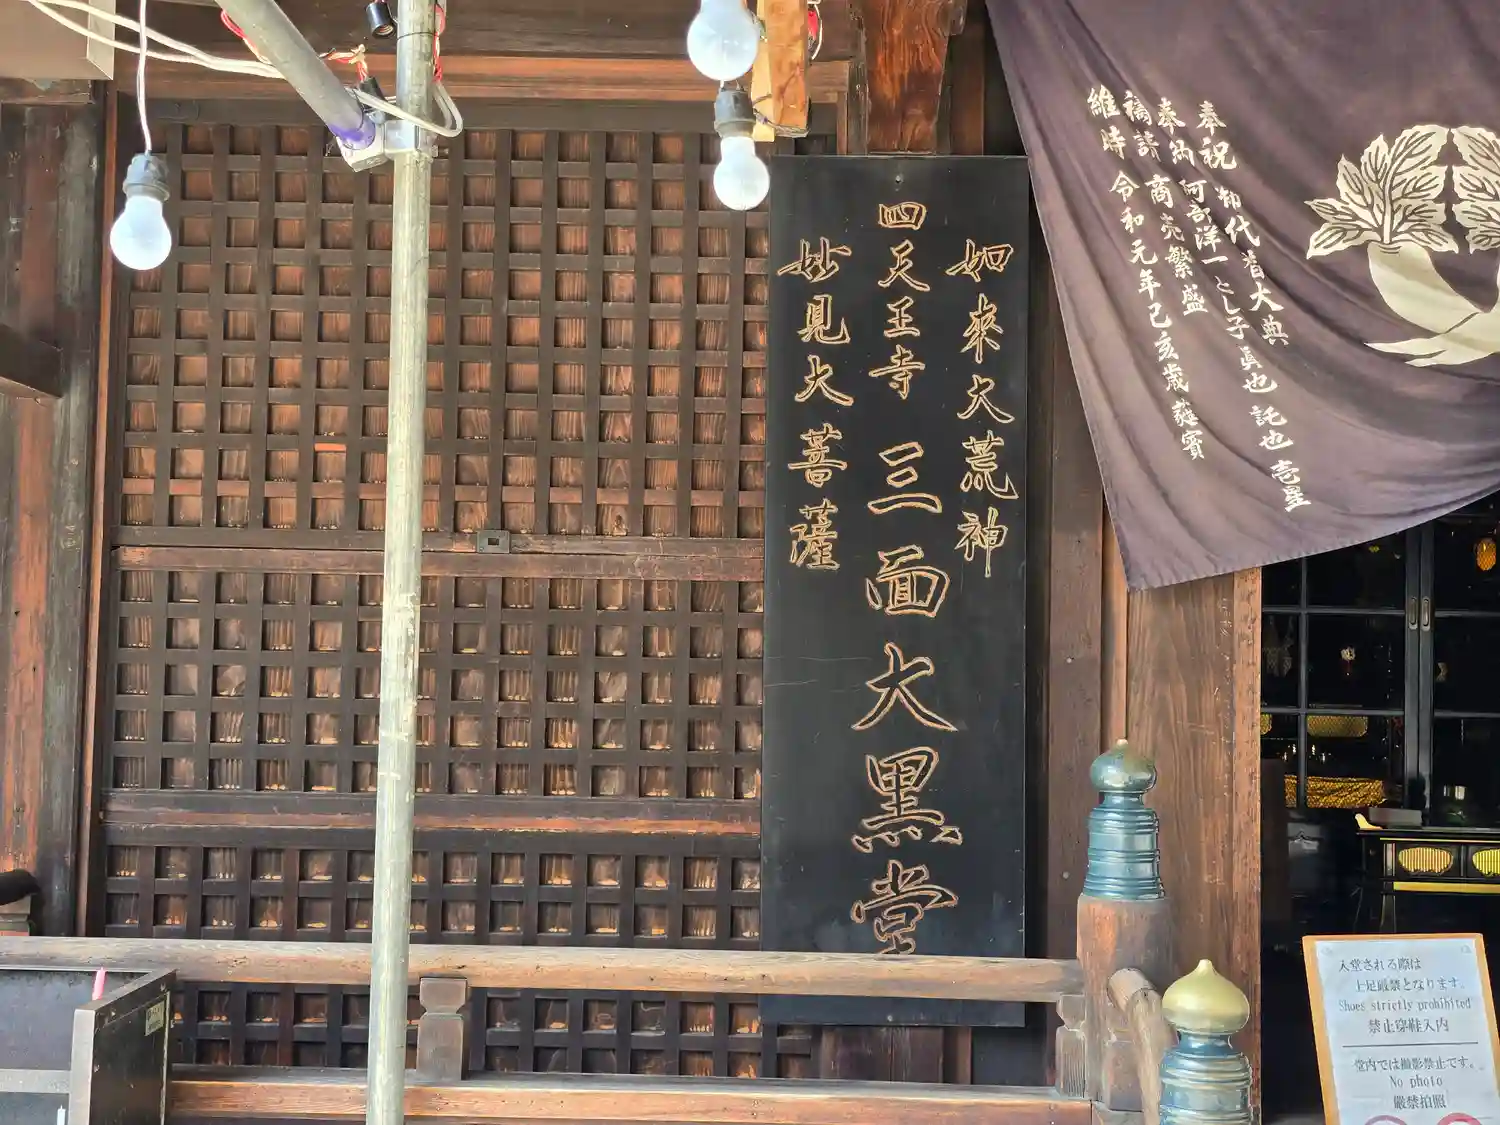 如來大荒神
四天王寺 三面大黒堂
妙見大菩薩
奉祝 御代替大典
奉納 阿部洋一 とし子 真也 託也 壱星
祷請 商売繁盛
維時 令和元年己亥歳蕤賓
入堂される際は
土足厳禁となります。
Shoes strictly prohibited
禁止穿鞋入内
堂内では撮影禁止です。
No photo
厳禁拍照